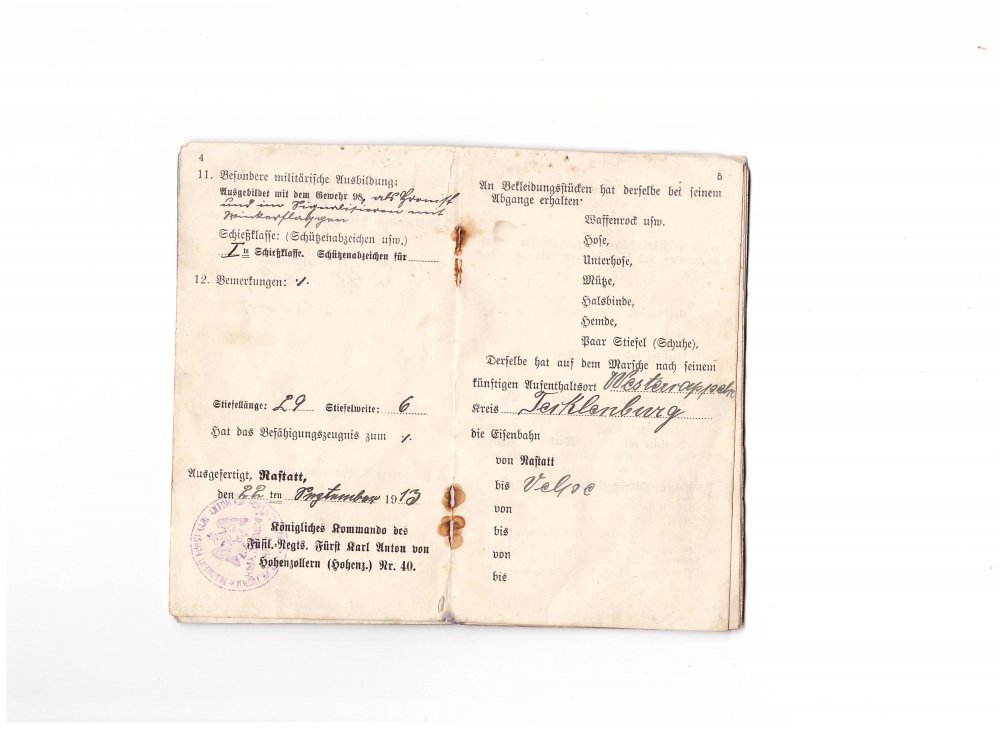 4
11. Besondere militärische Ausbildung:
Ausgebildet mit dem Gewehr 98, als
und im Signalisieren mit
Winkerflaggen
Schießklasse: (Schützenabzeichen usw.)
Ite Schießklasse. Schützenabzeichen für
12. Bemerkungen: ./.
Stiefellänge: 29 Stiefelweite: 6
Hat das Befähigungszeugnis zum ./.
Ausgefertigt, Rastatt,
den 22 ten September 1913
Königliches Kommando des
Füsil.-Regts. Fürst Karl Anton von
Hohenzollern (Hohenz.) Nr. 40.
5
An Bekleidungsstücken hat derselbe bei seinem
Abgange erhalten:
Waffenrock usw.
Hose,
Unterhose,
Mütze,
Halsbinde,
Hemde,
Paar Stiefel (Schuhe).
Derselbe hat auf dem Marsche nach seinem
künftigen Aufenthaltsort Westerkappeln
Kreis Tecklenburg
die Eisenbahn
von Rastatt
bis Velpe
von
bis
von
bis